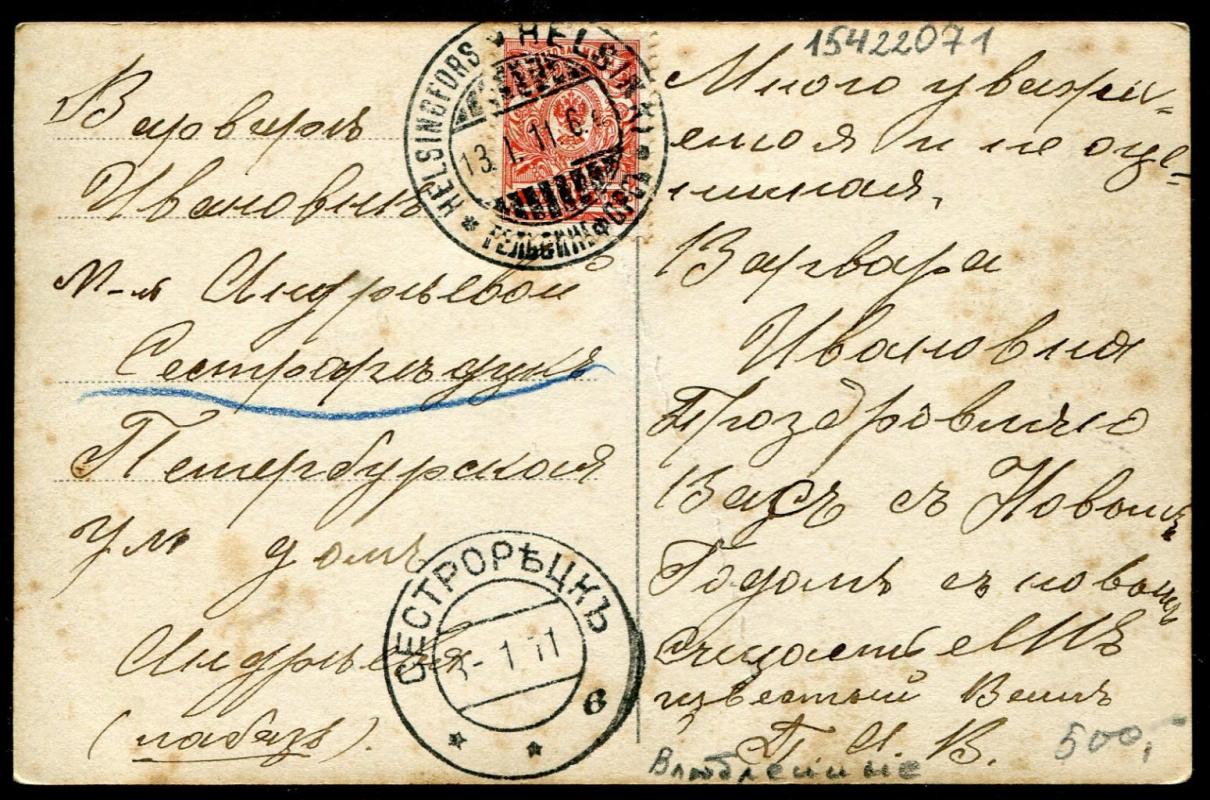 15422071
HELSINGFORS HELSINKI
13.1.11.6
ГЕЛЬСИНГФОРСЪ
Варваръ
Ивановнъ
М-я Андрѣевой
Сестраръцкъ
Петербурская
ул домъ
Андрѣева
(лабазъ).
СЕСТРОРѢЦКЪ
1.11
6
Много уважи-
емая и не оце-
нимая,
Варвара
Ивановна
Проздровляю
Васъ съ Новымъ
Годомъ съ новымъ
Сщастьемъ
извесный Вамъ
П. И. В.
500,-
Влюбленные